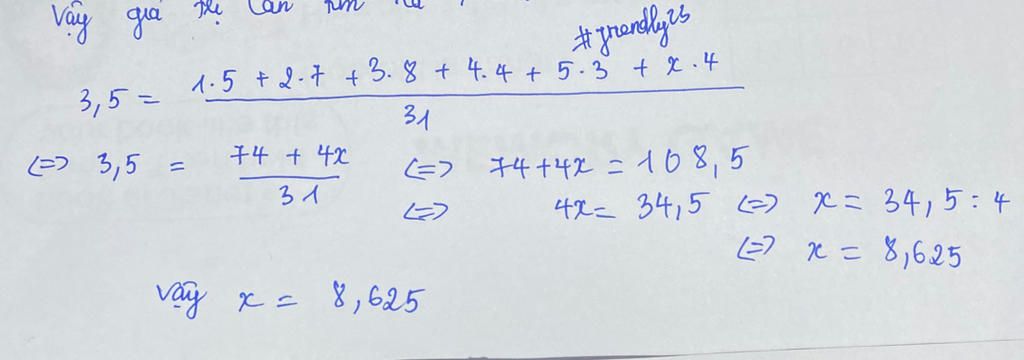 Vậy giá trị cần tìm
#friendly23
3,5 = 1.5 + 2.7 + 3.8 + 4.4 + 5.3 + x.4
31
<=> 3,5 = 74 + 4x <=> 74+4x = 108,5
31
<=> 4x = 34,5 <=> x = 34,5 : 4
<=> x = 8,625
Vậy x = 8,625